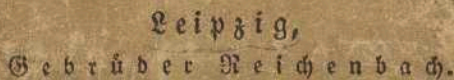 Leipzig,
Gebrüder Reichenbach.